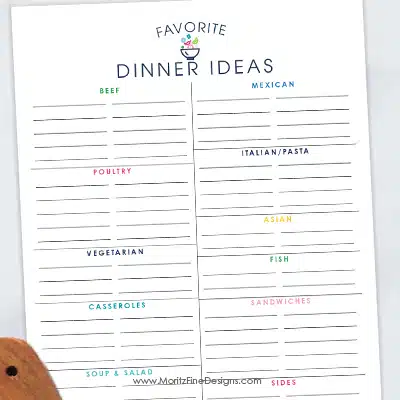 FAVORITE
DINNER IDEAS
BEEF
MEXICAN
POULTRY
ITALIAN/PASTA
VEGETARIAN
ASIAN
FISH
CASSEROLES
SANDWICHES
SOUP & SALAD
SIDES
www.MoritzFineDesigns.com